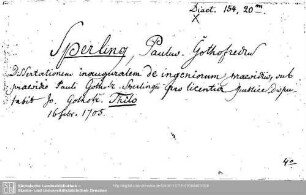 Diaet. 154, 20m.
X
Sperling, Paulus. Gothofredus
Dissertationem inauguralem de ingeniorum praesidiis, sub
praesidio Pauli Gothofr. Sperlingii pro licentia publice dispu-
tabit Jo. Gothofr. Thilo
16 febr. 1705.
4o
Sächsische Landesbibliothek -
Staats- und Universitätsbibliothek Dresden